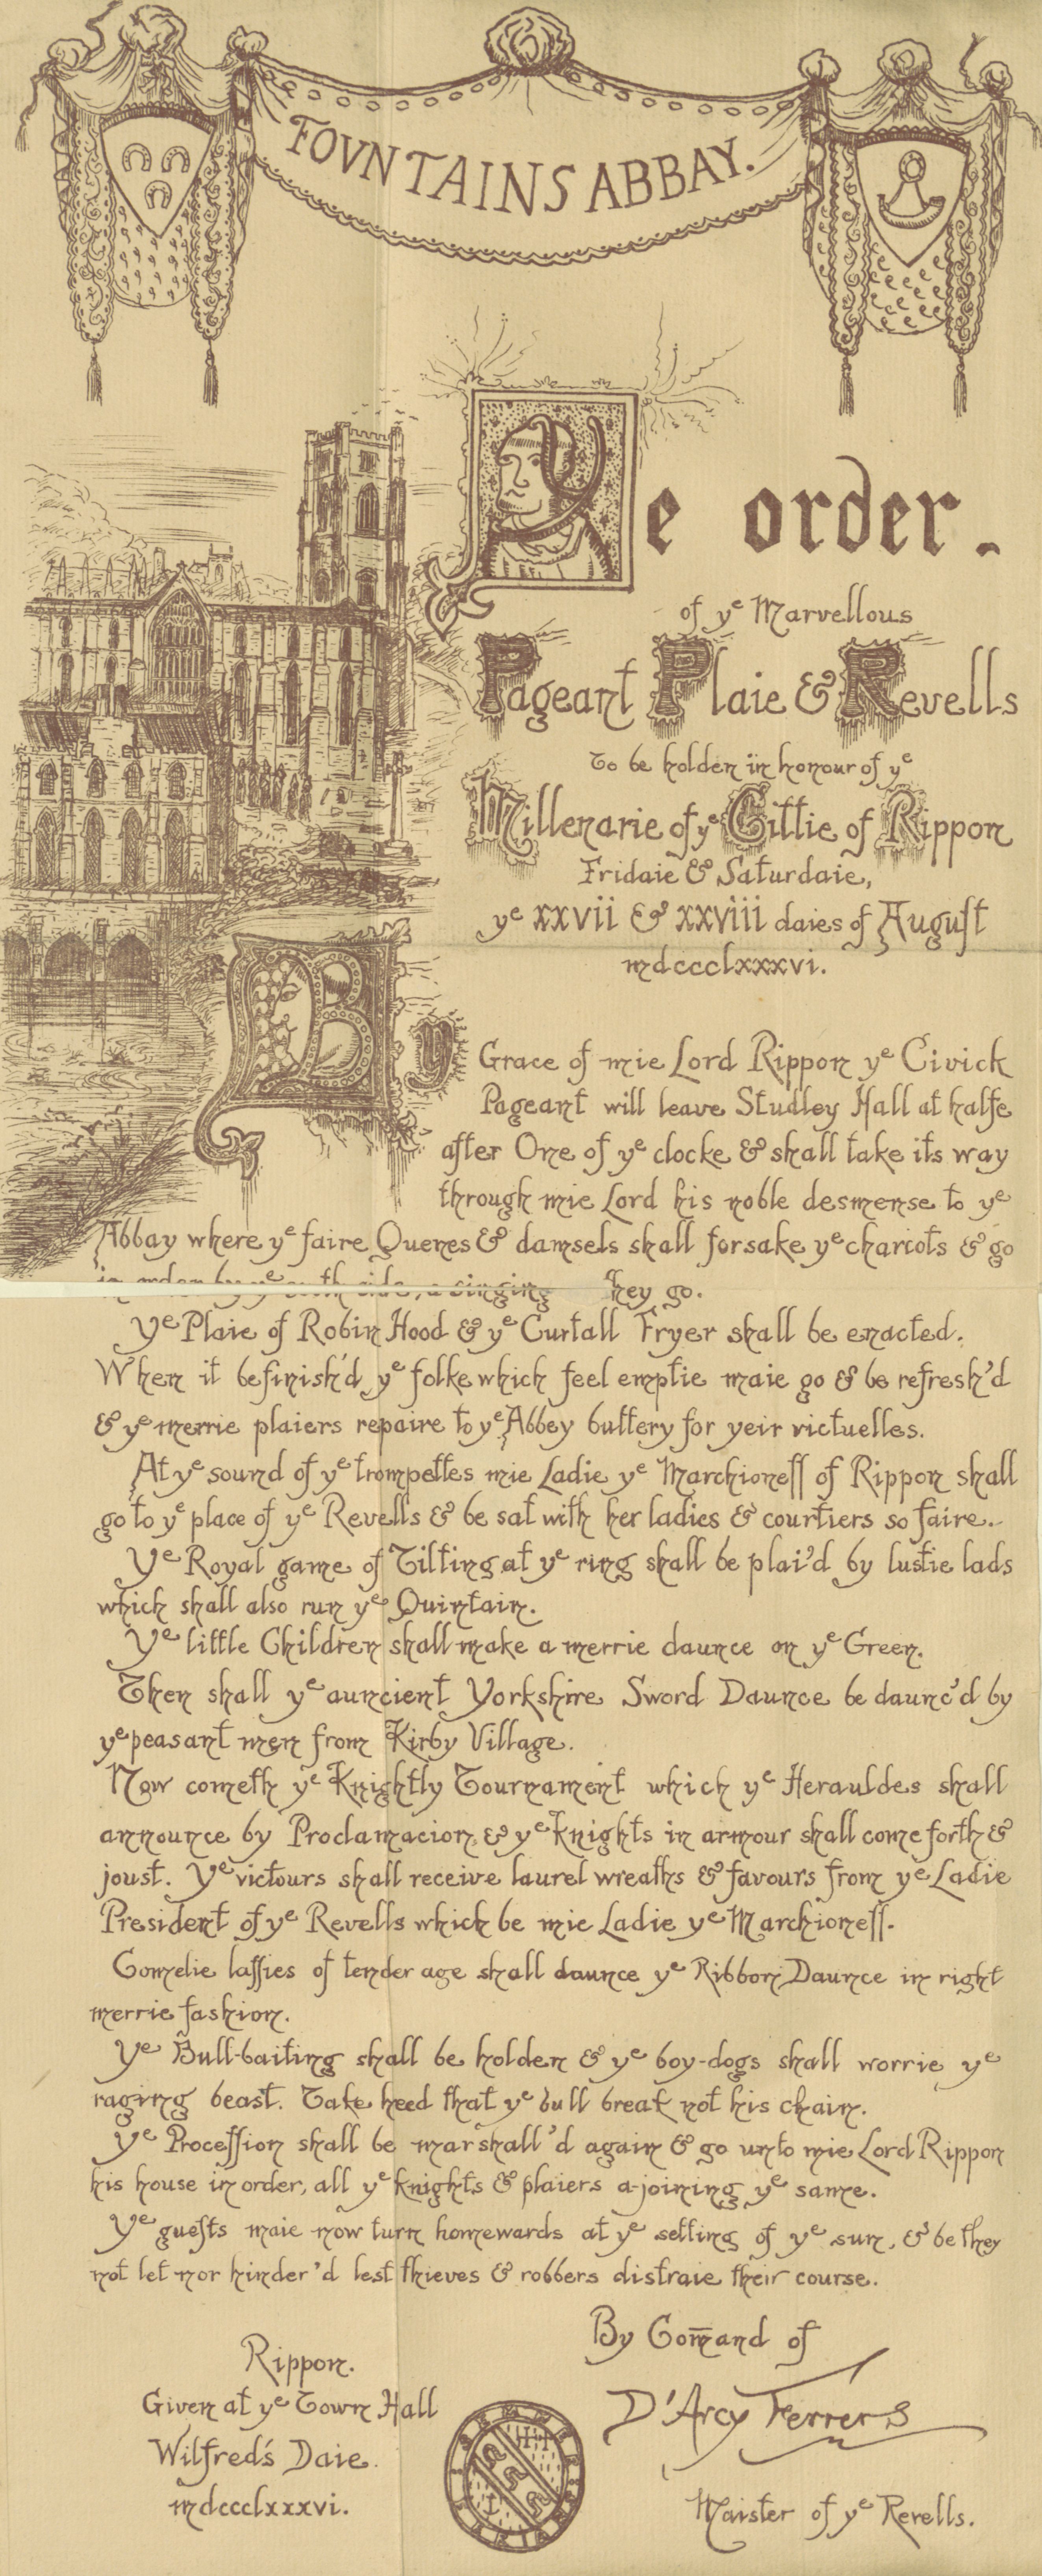 FOVNTAINS ABBAY.
Ye order.
of ye Marvellous
Pageant Plaie & Revells
To be holden in honour of ye
Millenarie of ye Cittie of Rippon
Fridaie & Saturdaie,
ye xxvii & xxviii daies of August
mdccclxxxvi.
By Grace of mie Lord Rippon ye Civick
Pageant will leave Studley Hall at halfe
after One of ye clocke & shall take its way
through mie Lord his noble desmense to ye
Abbay where ye faire Quenes & damsels shall forsake ye chariots & go
in order by ye south side, a singing hey go.
Ye Plaie of Robin Hood & ye Curtall Fryer shall be enacted.
When it befinish'd ye folke which feel emptie maie go & be refresh'd
& ye merrie plaiers repaire to ye Abbey buttery for yeir victuelles.
At ye sound of ye trompettes mie Ladie ye Marchioneſſ of Rippon shall
go to ye place of ye Revells & be sat with her ladies & courtiers so faire.
Ye Royal game of Tilting at ye ring shall be plai'd by lustie lads
which shall also run ye Quintain.
Ye little Children shall make a merrie daunce on ye Green.
Then shall ye auncient Yorkshire Sword Daunce be daunc'd by
ye peasant men from Kirby Village.
Now cometh ye Knightly Tournament which ye Herauldes shall
announce by Proclamacion, & ye Knights in armour shall come forth &
joust. Ye victours shall receive laurel wreaths & favours from ye Ladie
President of ye Revells which be mie Ladie ye Marchioneſſ.
Comelie laſſies of tender age shall daunce ye Ribbon Daunce in right
merrie fashion.
Ye Bull-baiting shall be holden & ye boy-dogs shall worrie ye
raging beast. Take heed that ye bull break not his chain.
Ye Proceſſion shall be marshall'd again & go unto mie Lord Rippon
his house in order, all ye knights & plaiers a-joining ye same.
Ye gueſts maie now turn homewards at ye setting of ye sun, & be they
not let nor hinder'd lest thieves & robbers distraie their course.
By Com̄and of
Rippon.
Given at ye Town Hall
Wilfred's Daie
mdccclxxxvi.
D'Arcy Ferrers
Maister of ye Revells.